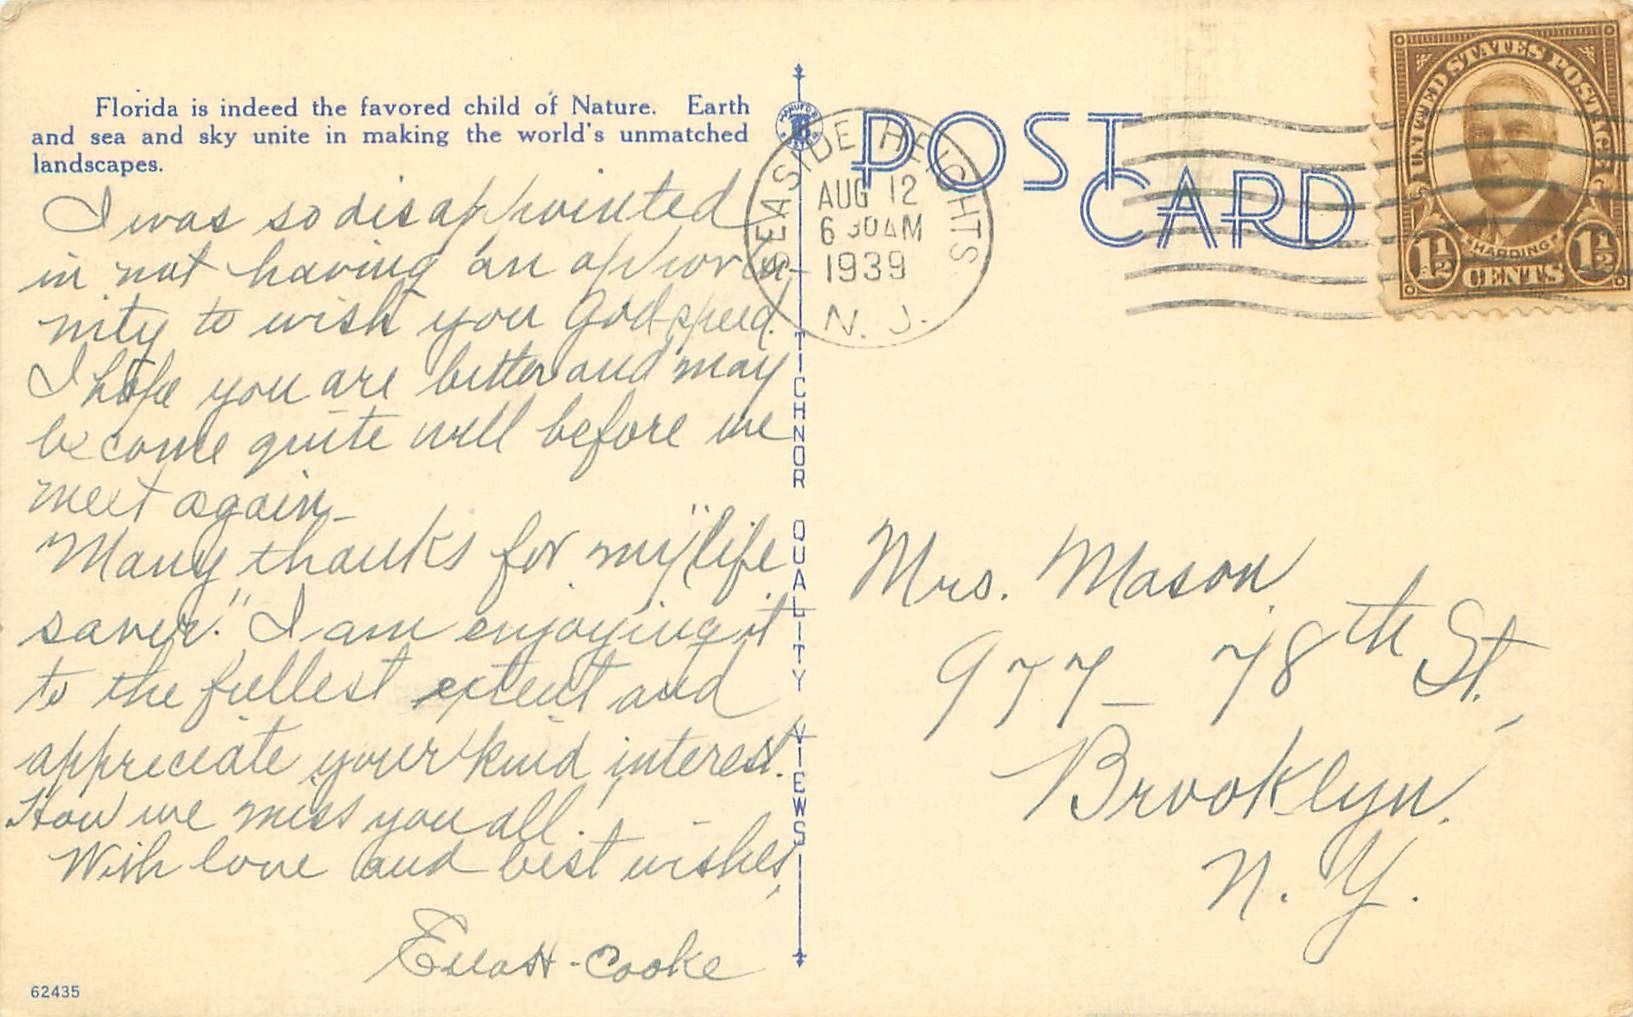 Florida is indeed the favored child of Nature. Earth
and sea and sky unite in making the world's unmatched
landscapes.
I was so disappointed
in not having an opportu-
nity to wish you Godspeed.
I hope you are better and may
become quite well before we
meet again—
Many thanks for my "life
saver." I am enjoying it
to the fullest extent and
appreciate your kind interest.
How we miss you all.
With love and best wishes,
Cooke
62435
TICHNOR QUALITY VIEWS
POST
CARD
SEASIDE HEIGHTS
AUG 12
6 30AM
1939
N. J.
UNITED STATES POSTAGE
HARDING
1½ CENTS 1½
Mrs. Mason
977— 78th St.,
Brooklyn,
N. Y.